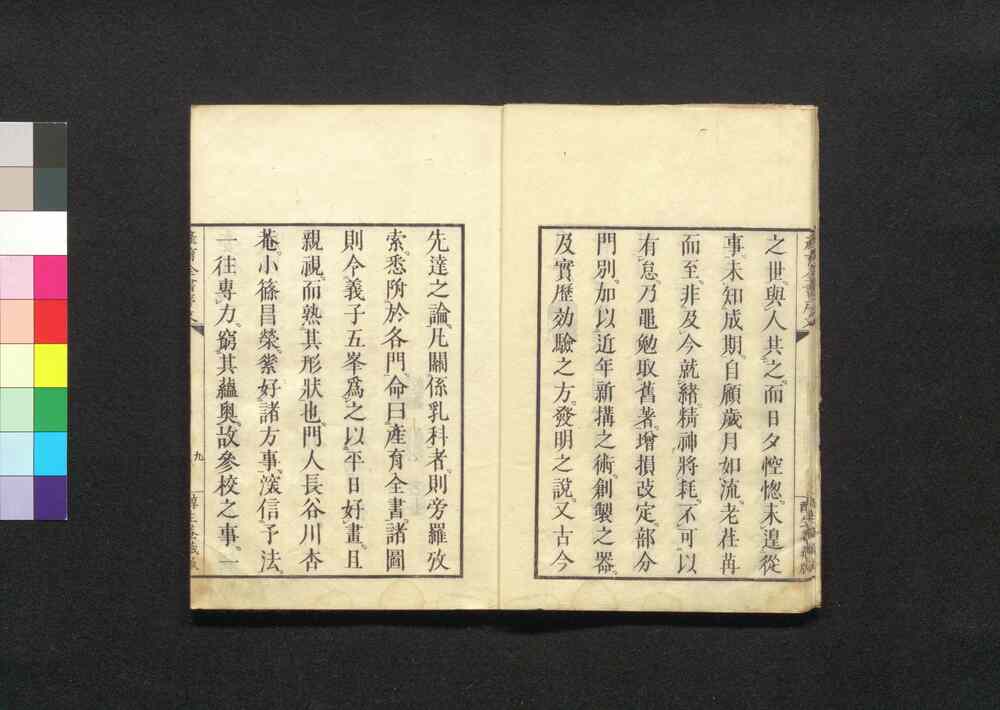 之世。與人共之。而日夕悾惚。未遑從
事。未知成期。自顧歲月如流。老荏苒
而至。非及今就緒。精神將耗。不可以
有怠。乃黽勉取舊著。增損改定。部分
門別。加以近年新搆之術。創製之器。
及實歷効驗之方。發明之說。又古今
先達之論。凡關係乳科者。則旁羅攷
索。悉附於各門。命曰產育全書。諸圖
則令義子五峯爲之。以平日好畫。且
親視。而熟其形狀也。門人長谷川杏
菴。小篠昌榮。素好諸方事。深信予法。
一往專力。窮其蘊奧。故參校之事。一
九